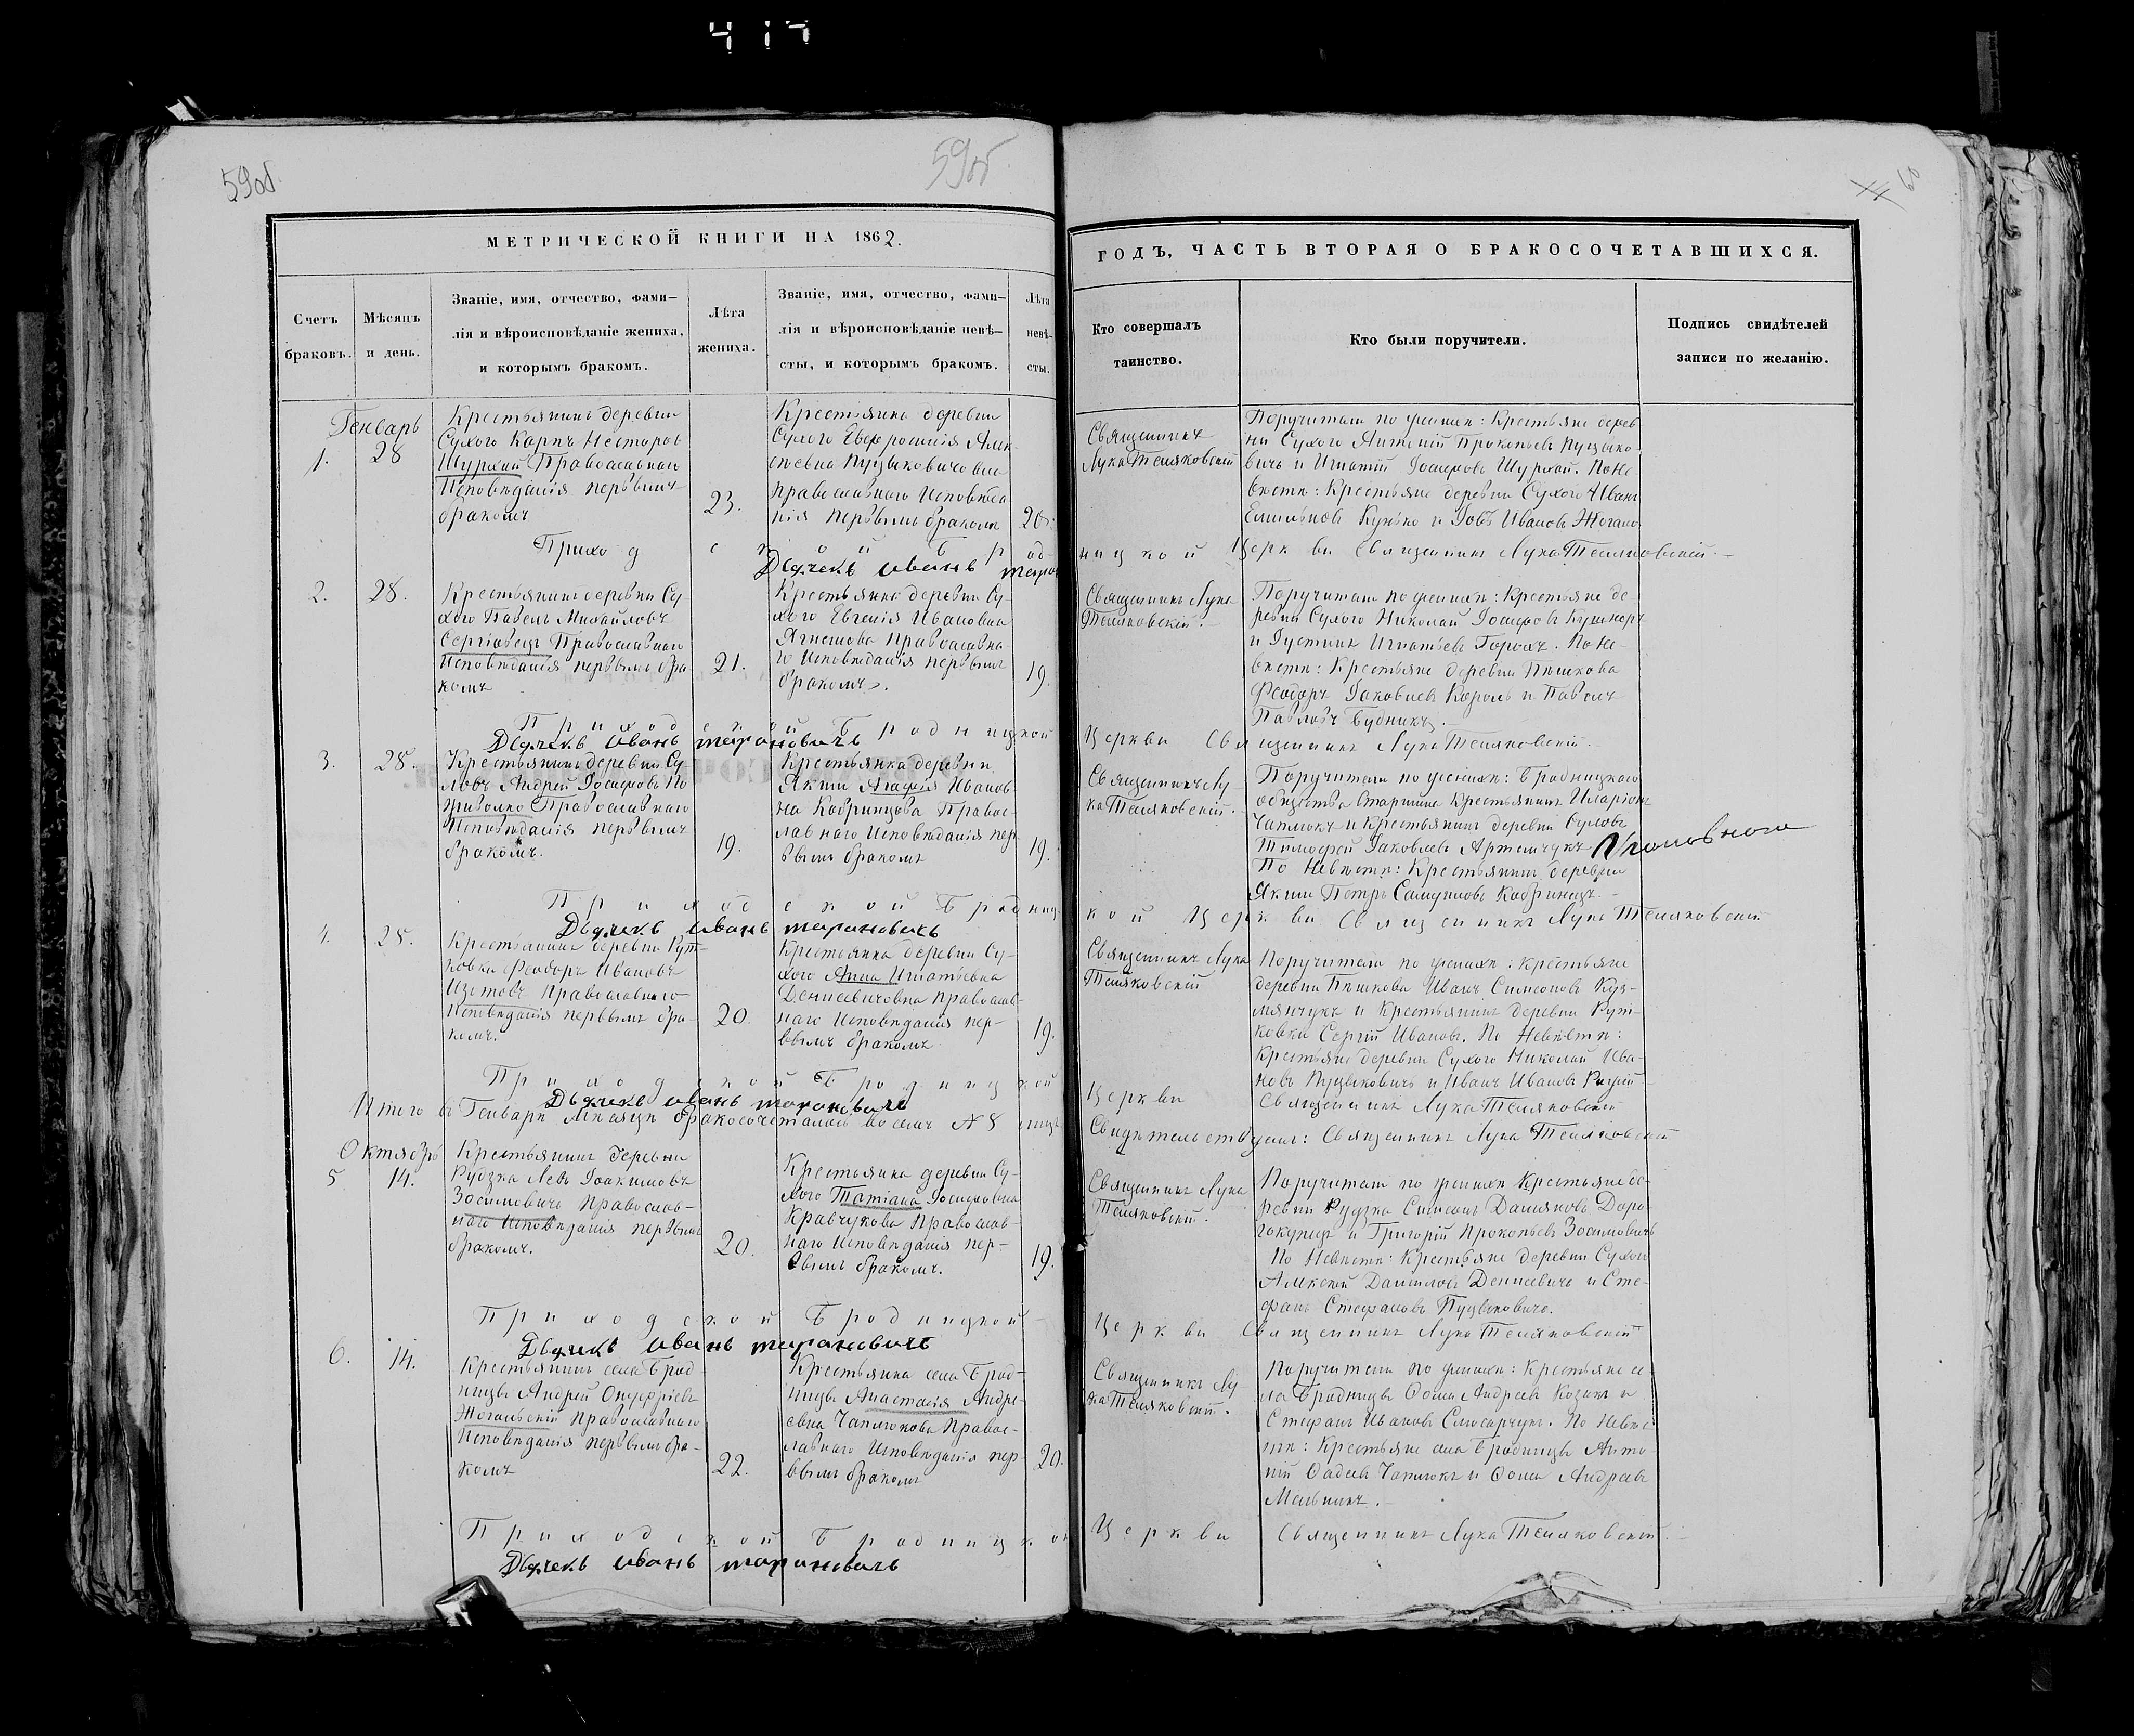 417
59об
59об
60
МЕТРИЧЕСКОЙ КНИГИ НА 1862.
ГОДЪ, ЧАСТЬ ВТОРАЯ О БРАКОСОЧЕТАВШИХСЯ.
Счетъ
браковъ.
Мѣсяцъ
и день.
Званіе, имя, отчество, фами-
лія и вѣроисповѣданіе жениха,
и которымъ бракомъ.
Лѣта
жениха.
Званіе, имя, отчество, фами-
лія и вѣроисповѣданіе невѣ-
сты, и которымъ бракомъ.
Лѣта
невѣ-
сты.
Кто совершалъ
таинство.
Кто были поручители.
Подпись свидѣтелей
записи по желанію.
Генварь
1.
28
Крестьянинъ деревни
Сухого Карпъ Несторовъ
Шурхай Православнаго
Исповѣданія первымъ
бракомъ
23.
Крестьянка деревни
Сухого Евфросинія Алек
сѣевна Пуцыковичовна
Православнаго Исповѣда
нія первымъ бракомъ
20.
Священникъ
Лука Теляковскій
Поручители по женихѣ: Крестьяне дерев
ни Сухого Антоній Прокопьевъ Пуцыко
вичъ и Игнатій Іосифовъ Шурхай. По Не
вѣстѣ: Крестьяне деревни Сухого Иванъ
Емильяновъ Кунько и Іовъ Ивановъ Жогало
Приходской Брод
ницкой Церкви Священникъ Лука Теляковскій.
Дьячекъ Иванъ
2.
28.
Крестьянинъ деревни Су-
хого Павелъ Михайловъ
Сергіовецъ Православнаго
Исповѣданія первымъ бра-
комъ
21.
Крестьянка деревни Су-
хого Евгенія Ивановна
Православна
го Исповѣданія первымъ
бракомъ.
19.
Священникъ Лука
Теляковскій.
Поручители по женихѣ: Крестьяне де
ревни Сухого Николай Іосифовъ Кушнеръ
и Іустинъ Игнатьевъ Горохъ. По Не-
вѣстѣ: Крестьяне деревни Пѣшкова
Феодоръ Іаковлевъ Король и Павелъ
Павловъ Будникъ.
Приходской Бродницкой
Церкви Священникъ Лука Теляковскій.
Дьячекъ Иванъ Тарановичъ
3.
28.
Крестьянинъ деревни Су
Андрей Іосифовъ По
Православнаго
Исповѣданія первымъ
бракомъ.
19.
Крестьянка деревни
Якши Агафія Иванов-
на Кобринцова Правос-
лавнаго Исповѣданія пер
вымъ бракомъ
19.
Священникъ Лу-
ка Теляковскій.
Поручители по женихѣ: Бродницкаго
общества Старшина Крестьянинъ Иларіонъ
Чаплюкъ и Крестьянинъ деревни
Тимофей Іаковлевъ Артемчукъ
По Невѣстѣ: Крестьянинъ деревни
Якши Петръ Самуиловъ Кобринецъ.
Приходской Бродниц-
кой Церкви Священникъ Лука Теляковскій
Дьячекъ Иванъ Тарановичъ
4.
28.
Крестьянинъ деревни Рут-
ковки Феодоръ Ивановъ
Православнаго
Исповѣданія первымъ бра-
комъ.
20.
Крестьянка деревни Су-
хого Анна Игнатьевна
Денисевичовна Православ-
наго Исповѣданія пер-
вымъ бракомъ
19.
Священникъ Лука
Теляковскій
Поручители по женихѣ: Крестьяне
деревни Пѣшкова Иванъ Симеоновъ Куз-
мянчукъ и Крестьянинъ деревни Рут-
ковки Сергій Ивановъ. По Невѣстѣ:
Крестьяне деревни Сухого Николай Ива-
новъ Пуцыковичъ и Иванъ Ивановъ
Приходской Бродницкой
Церкви Священникъ Лука Теляковскій
Дьячекъ Иванъ Тарановичъ
Итого въ Генварѣ Мѣсяцѣ бракосочеталось восемь № 8 лицъ
Свидѣтельствуемъ: Священникъ Лука Теляковскій
Октябрь
5
14.
Крестьянинъ деревни
Рудзка Левъ Іоакимовъ
Зосимовичъ Православ-
наго Исповѣданія первымъ
бракомъ.
20.
Крестьянка деревни Су-
хого Татіана Іосифовна
Кравчукова Православ-
наго Исповѣданія пер-
вымъ бракомъ.
19.
Священникъ Лука
Теляковскій.
Поручители по женихѣ Крестьяне де-
ревни Рудзка Симеонъ Даміановъ Доро-
гокупецъ и Григорій Прокопьевъ Зосимовичъ
По Невѣстѣ: Крестьяне деревни Сухого
Алексій Даниловъ Денисевичъ и Сте-
фанъ Стефановъ Пуцыковичъ.
Приходской Бродницкой
Церкви Священникъ Лука Теляковскій
Дьячекъ Иванъ Тарановичъ
6.
14.
Крестьянинъ села Брод-
ницы Андрей Онуфріевъ
Жогальскій Православнаго
Исповѣданія первымъ бра-
комъ
22.
Крестьянка села Брод-
ницы Анастасія Андре-
евна Чаплюкова Правос-
лавнаго Исповѣданія пер-
вымъ бракомъ
20.
Священникъ Лу
ка Теляковскій.
Поручители по женихѣ: Крестьяне се
ла Бродницы Ѳома Андреевъ Козакъ и
Стефанъ Ивановъ Слюсарчукъ. По Невѣс
тѣ: Крестьяне села Бродницы Анто-
ній Фадеевъ Чаплюкъ и Ѳома Андреевъ
Мельникъ.
Приходской Бродницкой
Церкви Священникъ Лука Теляковскій
Дьячекъ Иванъ Тарановичъ